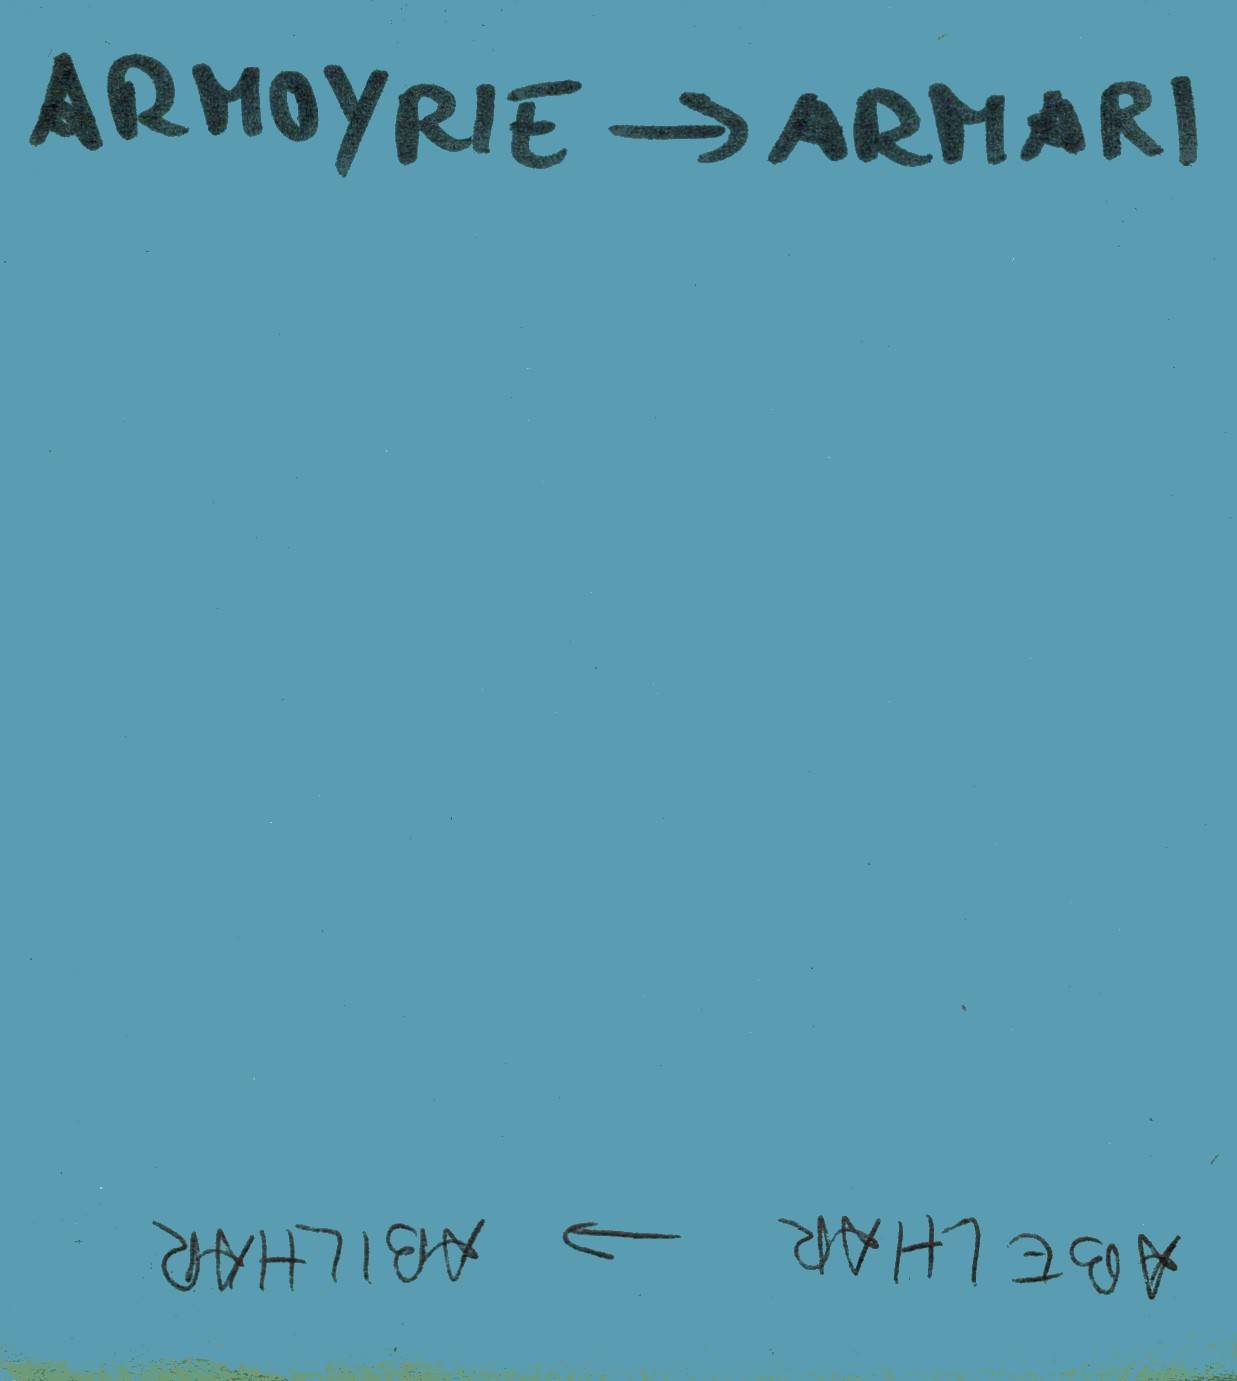 ARMOYRIE → ARMARI
ABELHAR → ABILHAR